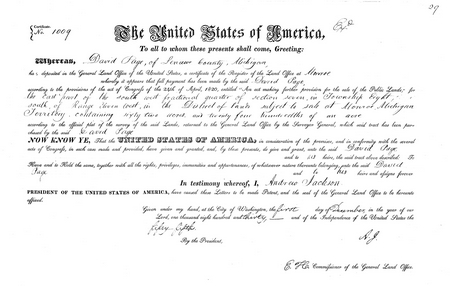 99
Certificate
No. 1009
The United States of America,
To all to whom these presents shall come, Greeting:
Whereas, David Page, of Lenawee County, Michigan,
ha deposited in the General Land Office of the United States, a certificate of the Register of the Land Office at Monroe
whereby it appears that full payment has been made by the said David Page
according to the provisions of the act of Congress of the 24th of April, 1820, entitled "An act making further provision for the sale of the Public Lands;" for
the East half of the south west fractional quarter of section seven, in Township eight,
south, of Range seven east, in the District of Lands subject to sale at Monroe, Michigan
Territory, containing sixty two acres and twenty four hundredths of an acre
according to the official plat of the survey of the said Lands, returned to the General Land Office by the Surveyor General, which said tract has been pur-
chased by the said David Page
NOW KNOW YE, That the UNITED STATES OF AMERICA, in consideration of the premises, and in conformity with the several
acts of Congress, in such case made and provided, have given and granted, and, by these presents, do give and grant, unto the said David Page
and to his heirs, the said tract above described: To
Have and to Hold the same, together with all the rights, privileges, immunities and appurtenances, of whatsoever nature thereunto belonging, unto the said David
Page and to his heirs and assigns forever
In testimony whereof, I, Andrew Jackson
PRESIDENT OF THE UNITED STATES OF AMERICA, have caused these Letters to be made Patent, and the seal of the General Land Office to be hereunto
affixed.
Given under my hand, at the City of Washington, the first day of December in the year of our
Lord, one thousand eight hundred and thirty and of the Independence of the United States the
fifty fifth
By the President, A.J.
Commissioner of the General Land Office.